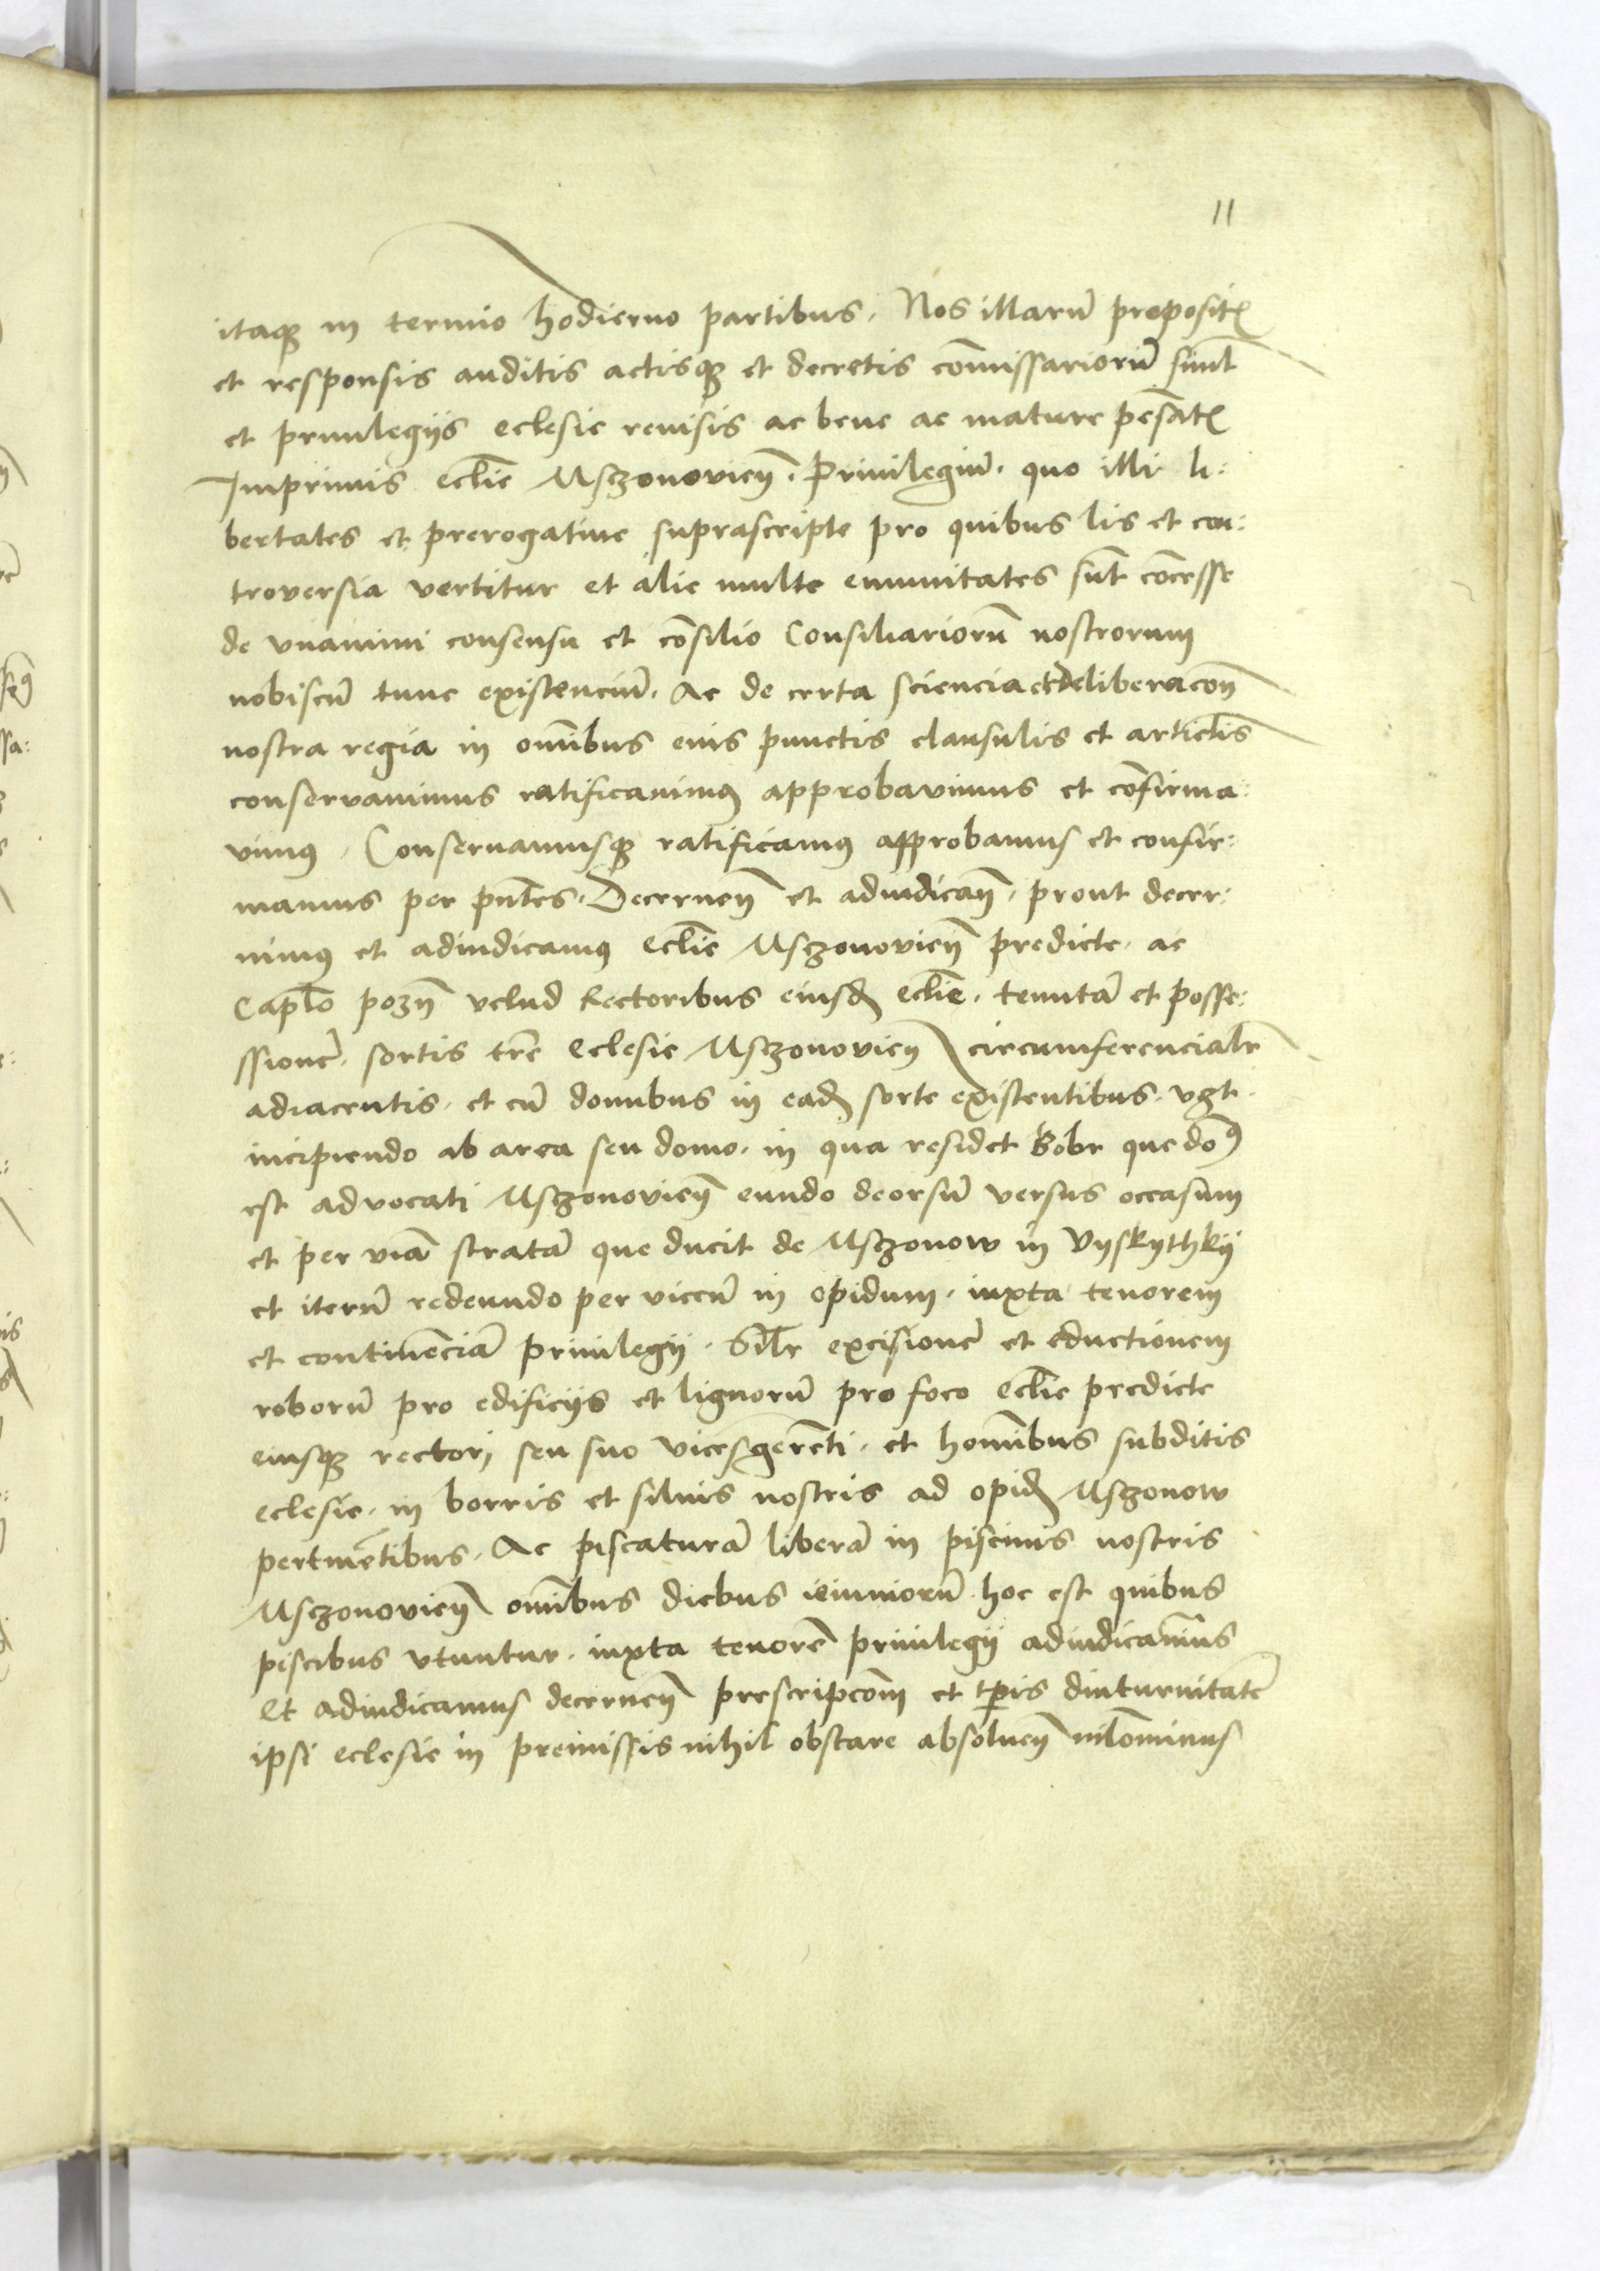 11
itaq̃ in termio hodierno partibus. Nos illarũ proposit̃
et responsis auditis actisq̃ et decretis com̃issariorũ simt̃
et priuilegijs eclesie reuisis ac bene ac mature pẽsat̃
Imprimis ecl̃ie Msczonovień. Priuilegiũ. quo illi li:
bertates et prerogatiue suprascripte pro quibus lis et con:
troversia vertitur et alie multe emunitates sũt cõcesse
de vnanimi consensu et cõsilio Consiliariorũ nostrorum
nobiscũ tunc existenciũ. Ac de certa sciencia et deliberacoñ
nostra regia in om̃ibus eius punctis clausulis et articl̃is
conservauimus ratificauimꝰ approbavimus et cõfirma:
vimꝰ. Conseruamusq̃ ratificamꝰ approbamus et confir:
mamus per pñtes. Decerneñ et adiudicañ. prout decer:
nimꝰ et adiudicamꝰ ecl̃ie Msczonovień predicte. ac
Capl̃o pozñ velud Rectoribus eiusd̃ ecl̃ie. tenutã et posse:
ssionẽ. sortis tr̃e Eclesie Msczonovień circumferencialr̃
adiacentis. et cũ domibus in ead̃ sorte existentibus. vgt.
incipiendo ab area seu domo. in qua residet Bobr que domꝰ
est advocati Msczonovień eundo deorsũ versus occasum
et per viã stratã que ducit de Msczonow in Vyskythky
et iterũ redeundo per viccũ in opidum. iuxta tenorem
et continẽciã priuilegij. Sil̃r excisionẽ et eductionem
roborũ pro edificijs et lignorũ pro foco ecl̃ie predicte
eiusq̃ rectori seu suo vicesgerẽti. et hom̃ibus subditis
eclesie. in borris et siluis nostris ad opid̃ Msczonow
pertinẽtibus. Ac piscaturã liberã in piscinis nostris
Msczonovień om̃ibus diebus ieiuniorũ. hoc est quibus
piscibus vtuntur. iuxta tenorẽ priuilegij adiudicauimus
Et adiudicamus decerneñ prescripcoñ et tp̃is diuturnitatẽ
ipsi eclesie in premissis nihil obstare absolueñ nil̃ominus